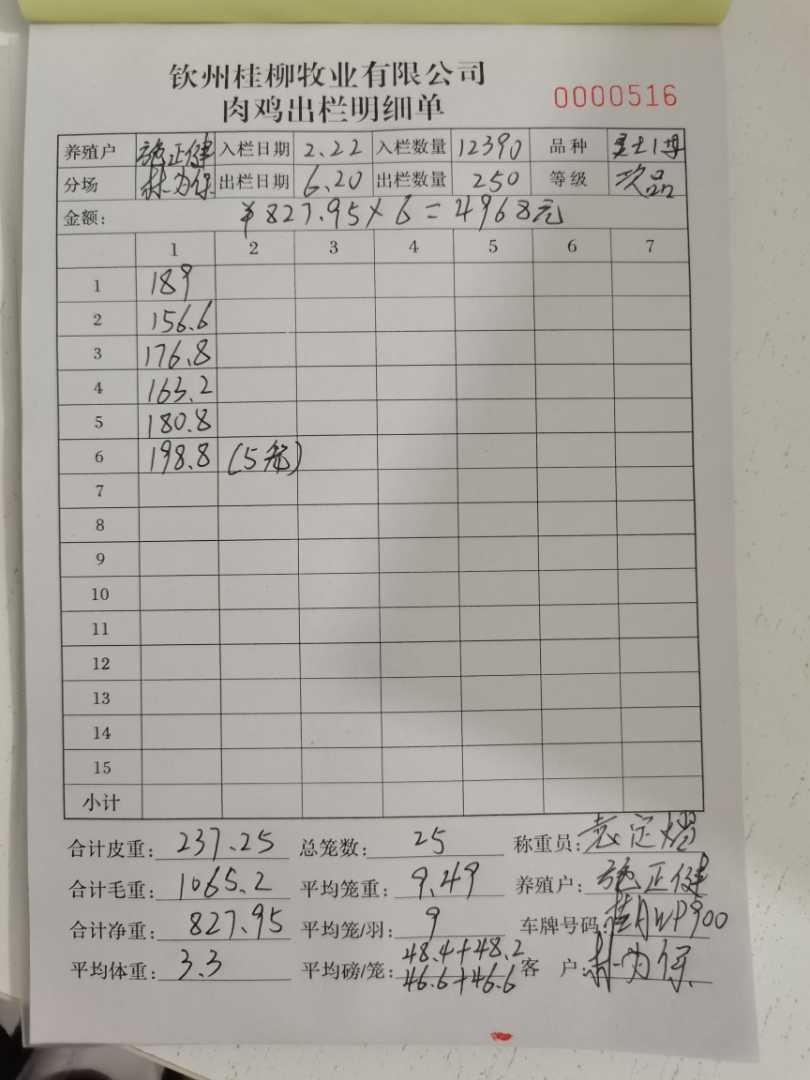 钦州桂柳牧业有限公司
肉鸡出栏明细单 0000516
养殖户 施正健 入栏日期 2.22 入栏数量 12390 品种
分场 林为保 出栏日期 6.20 出栏数量 250 等级 次品
金额: ¥827.95×6=4968元
1 2 3 4 5 6 7
1 189
2 156.6
3 176.8
4 163.2
5 180.8
6 198.8 (5笼)
7
8
9
10
11
12
13
14
15
小计
合计皮重: 237.25 总笼数: 25 称重员:
合计毛重: 1065.2 平均笼重: 9.49 养殖户: 施正健
合计净重: 827.95 平均笼/羽: 9 车牌号码: 桂AWP900
平均体重: 3.3 平均磅/笼: 48.4+48.2 客 户: 林为保
46.6+46.6